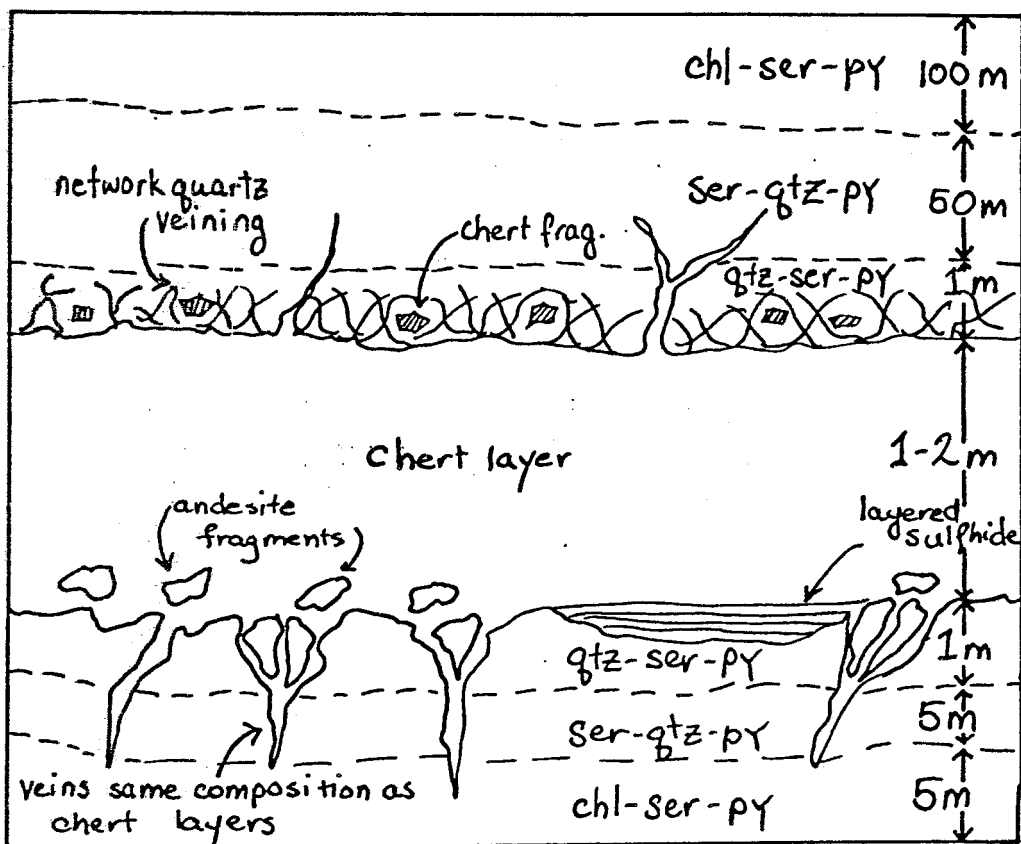 chl-ser-py 100 m
network quartz
veining
ser-qtz-py 50 m
chert frag.
qtz-ser-py 1 m
Chert layer 1-2 m
andesite
fragments
layered
sulphide
qtz-ser-py 1 m
ser-qtz-py 5 m
veins same composition as
chert layers
chl-ser-py 5 m